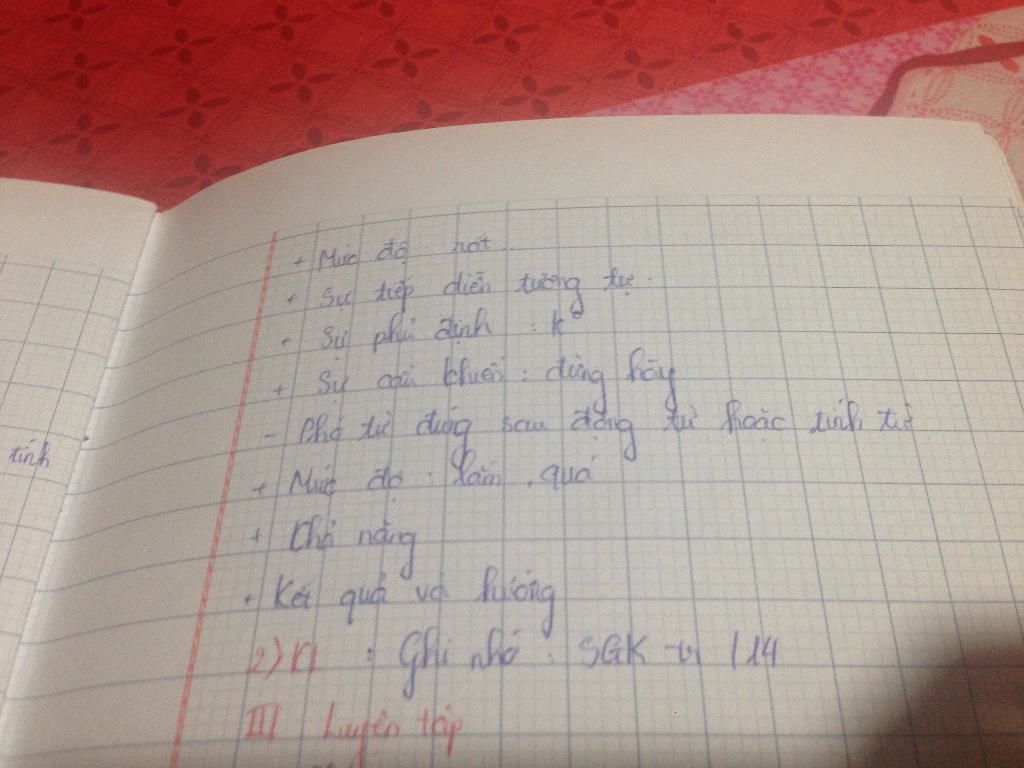 + Mức độ : rất
+ Sự tiếp diễn tương tự.
+ Sự phủ định : ko
+ Sự cầu khiến : đừng hãy
- Phó từ đứng sau động từ hoặc tính từ
+ Mức độ : lắm, quá
+ Khả năng
+ Kết quả và hướng
2) Kl : Ghi nhớ : SGK - 14
III Luyện tập
tính